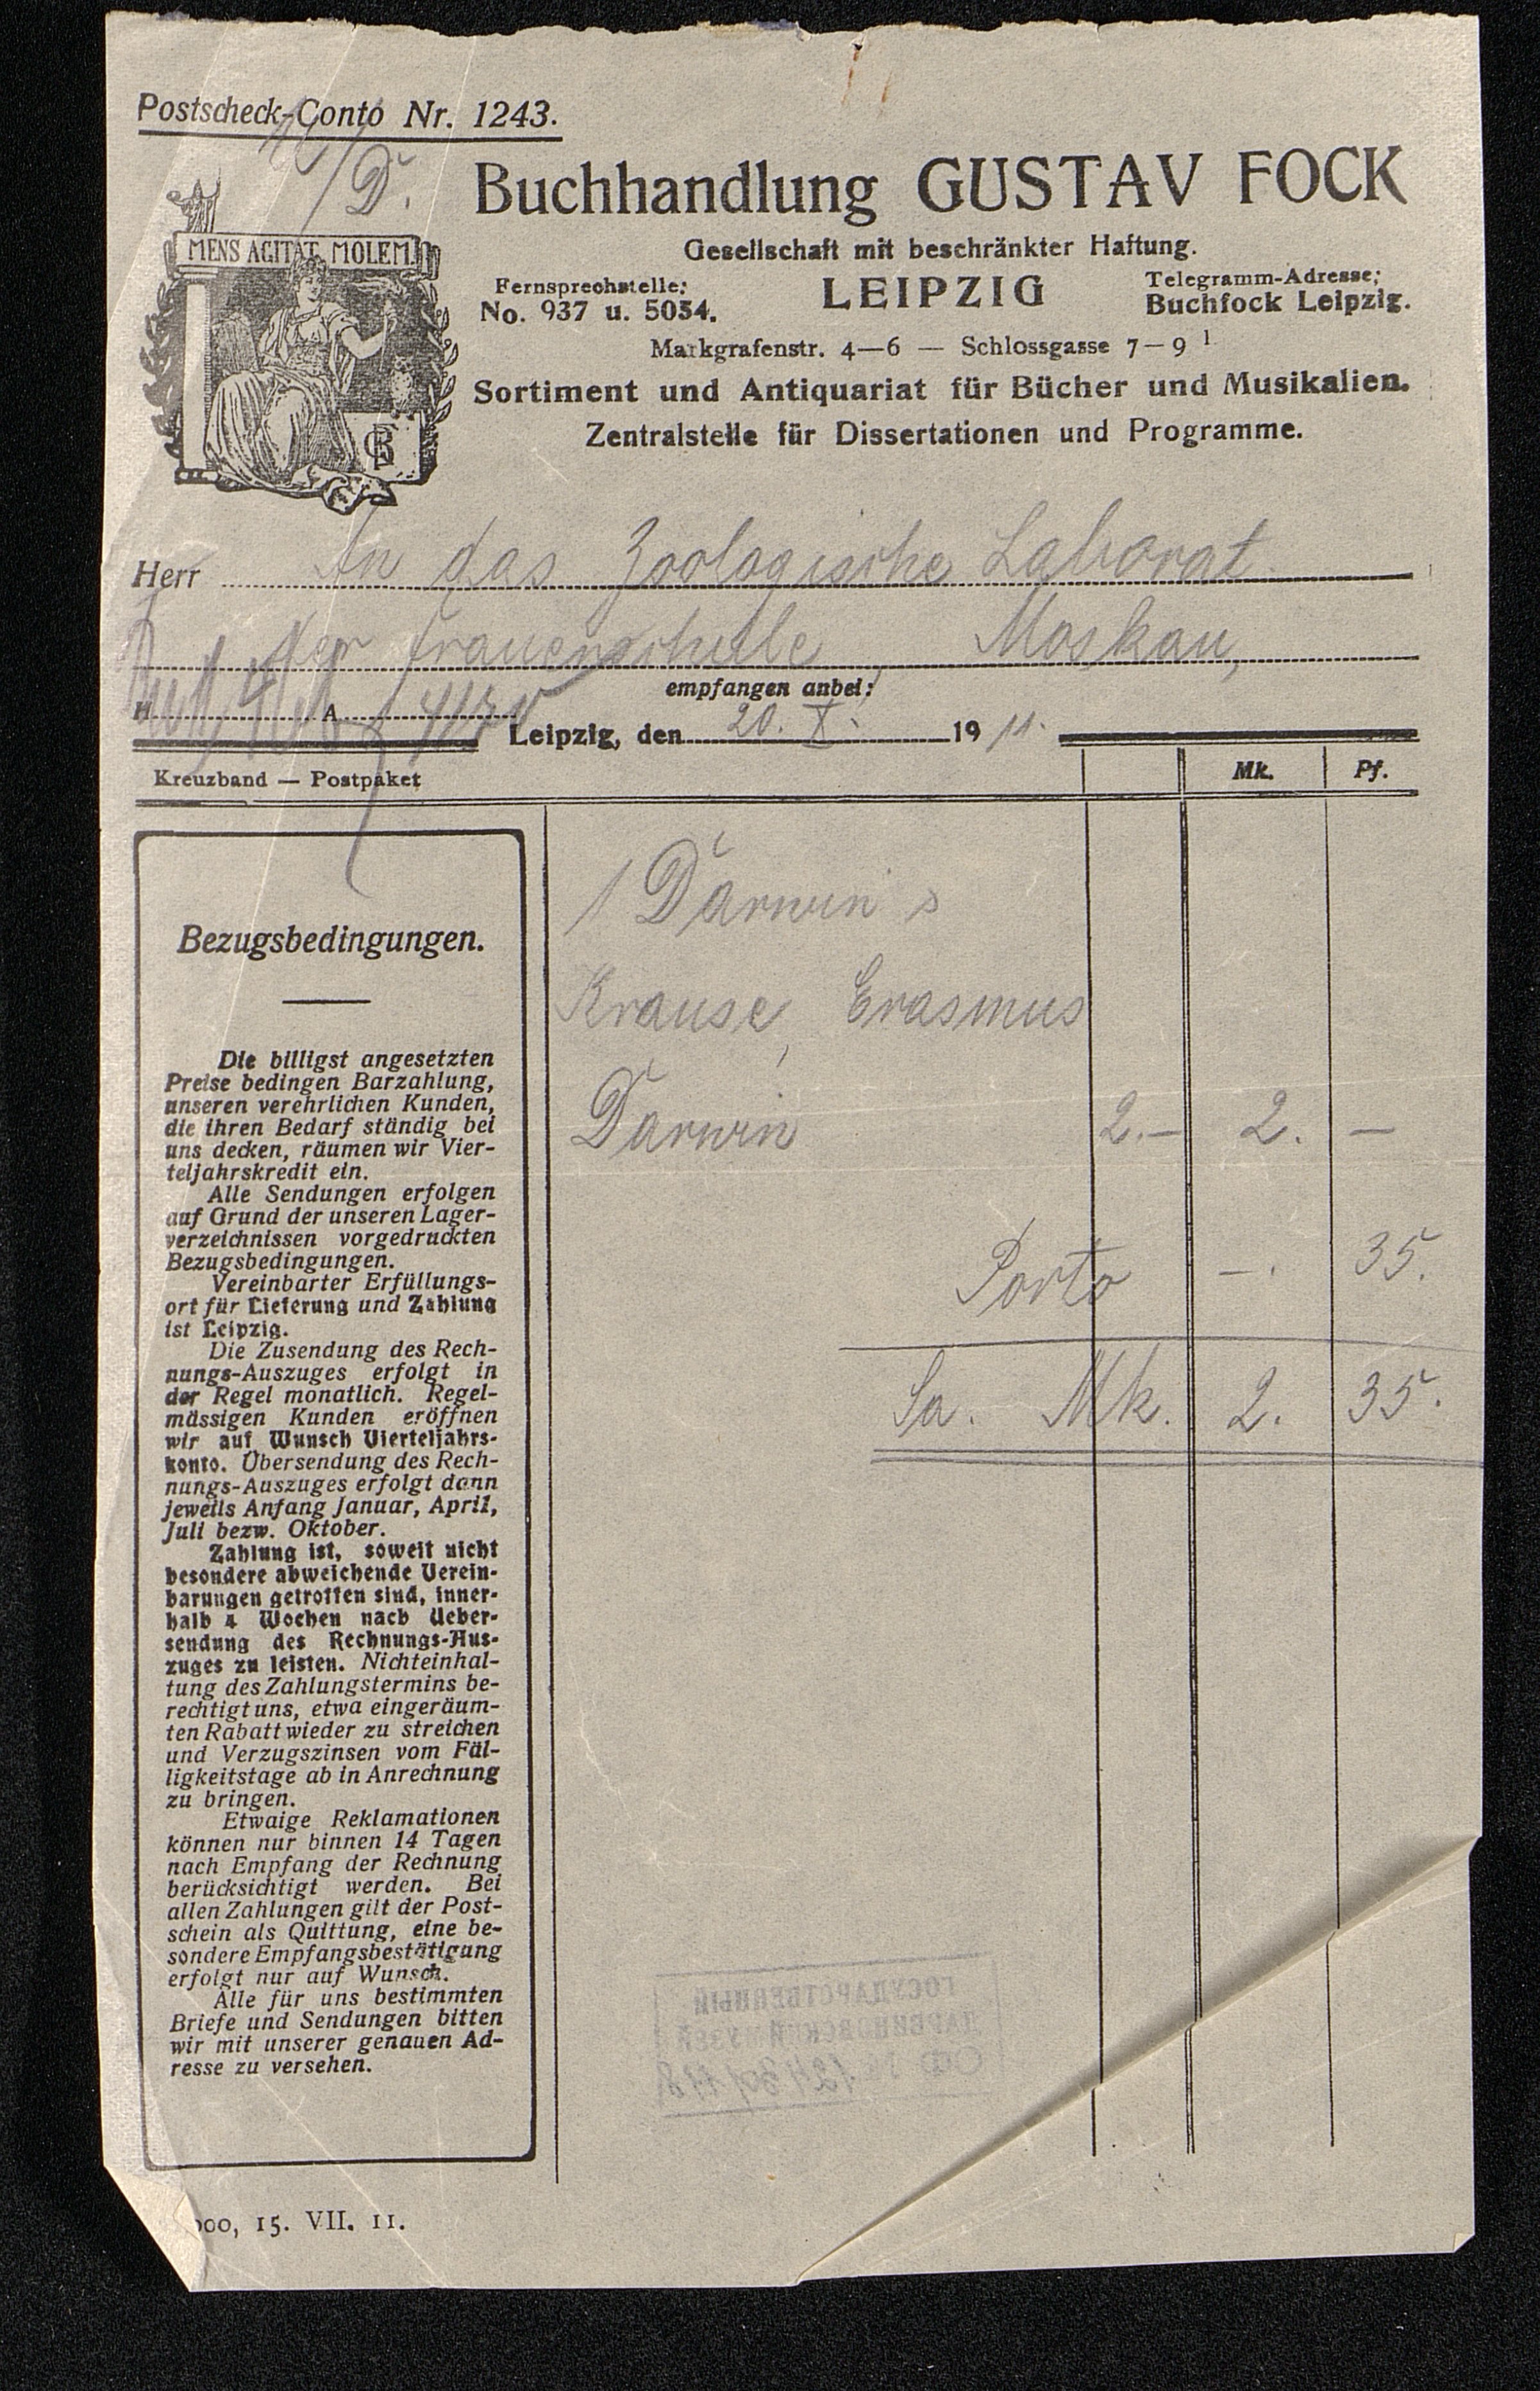 Postscheck-Conto Nr. 1243.
D.
MENS AGITAT MOLEM
Buchhandlung GUSTAV FOCK
Gesellschaft mit beschränkter Haftung.
Fernsprechstelle:
No. 937 u. 5034.
LEIPZIG
Telegramm-Adresse:
Buchfock Leipzig.
Markgrafenstr. 4—6 — Schlossgasse 7—9 I
Sortiment und Antiquariat für Bücher und Musikalien.
Zentralstelle für Dissertationen und Programme.
Herr An das Zoologische Laborat.
der Frauenschule Moskau,
empfangen anbei:
H. A.
Leipzig, den 20. X. 1911.
Kreuzband — Postpaket
Mk. Pf.
Bezugsbedingungen.
Die billigst angesetzten
Preise bedingen Barzahlung,
unseren verehrlichen Kunden,
die ihren Bedarf ständig bei
uns decken, räumen wir Vier-
teljahrskredit ein.
Alle Sendungen erfolgen
auf Grund der unseren Lager-
verzeichnissen vorgedruckten
Bezugsbedingungen.
Vereinbarter Erfüllungs-
ort für Lieferung und Zahlung
ist Leipzig.
Die Zusendung des Rech-
nungs-Auszuges erfolgt in
der Regel monatlich. Regel-
mässigen Kunden eröffnen
wir auf Wunsch Vierteljahrs-
konto. Übersendung des Rech-
nungs-Auszuges erfolgt dann
jeweils Anfang Januar, April,
Juli bezw. Oktober.
Zahlung ist, soweit nicht
besondere abweichende Verein-
barungen getroffen sind, inner-
halb 4 Wochen nach Ueber-
sendung des Rechnungs-Aus-
zuges zu leisten. Nichteinhal-
tung des Zahlungstermins be-
rechtigt uns, etwa eingeräum-
ten Rabatt wieder zu streichen
und Verzugszinsen vom Fäl-
ligkeitstage ab in Anrechnung
zu bringen.
Etwaige Reklamationen
können nur binnen 14 Tagen
nach Empfang der Rechnung
berücksichtigt werden. Bei
allen Zahlungen gilt der Post-
schein als Quittung, eine be-
sondere Empfangsbestätigung
erfolgt nur auf Wunsch.
Alle für uns bestimmten
Briefe und Sendungen bitten
wir mit unserer genauen Ad-
resse zu versehen.
1 Darwin's
Krause, Erasmus
Darwin 2.— 2. —
Porto —. 35.
Sa. Mk. 2. 35.
ГОСУДАРСТВЕННЫЙ
ДАРВИНОВСКИЙ МУЗЕЙ
000, 15. VII. 11.